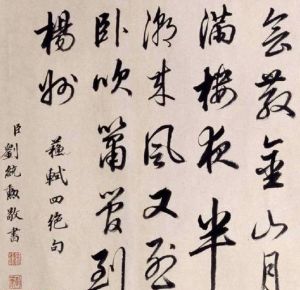 會散金山月
滿樓夜半
潮来風又熟
臥吹簫管到
楊州
蘇軾四絕句
臣劉統勳敬書